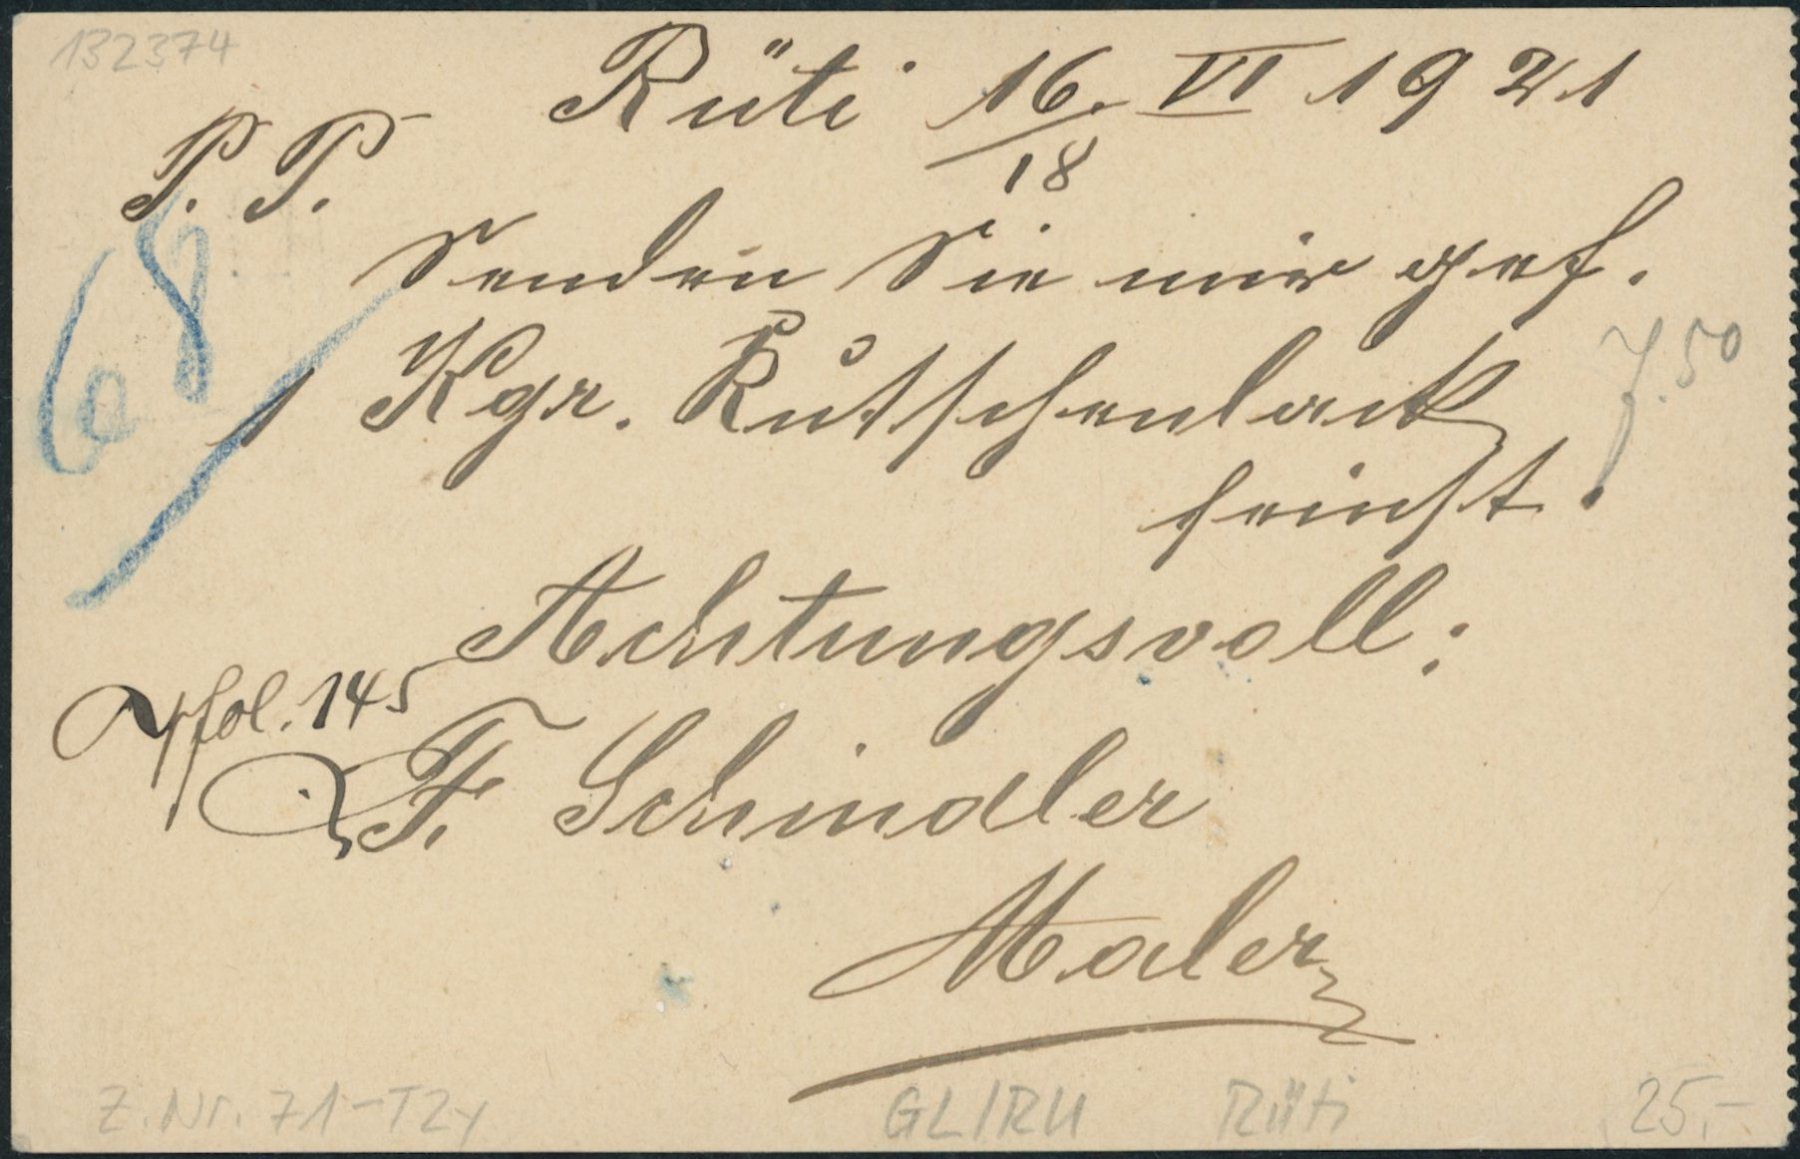 132374
Rüti 16. VI 1921
18
P. P.
68
Senden Sie mir gef.
1 Kgr. Kutschenlack
7.50
feinst.
Achtungsvoll:
fol. 145
F. Schindler
Maler
Z.Nr. 71-TZy GL/RU Rüti 25.-